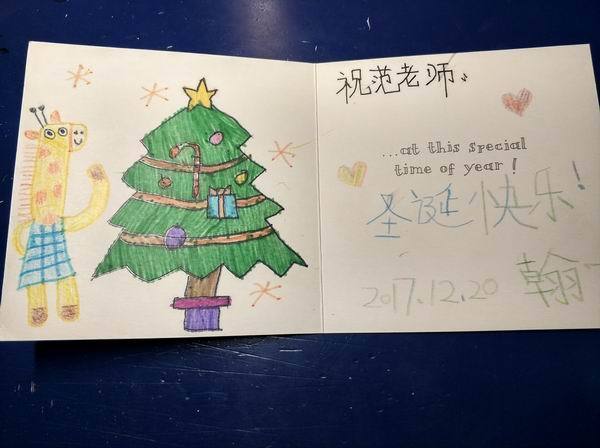 祝范老师:
...at this special
time of year!
圣诞快乐!
2017.12.20
翰